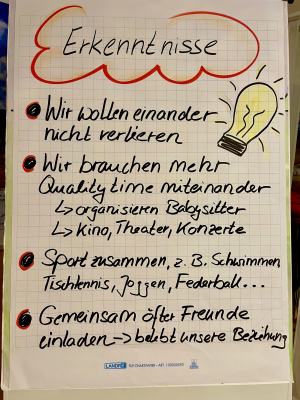 Erkenntnisse
Wir wollen einander
nicht verlieren
Wir brauchen mehr
Quality time miteinander
↳ organisieren Babysitter
↳ Kino, Theater, Konzerte
Sport zusammen, z. B. Schwimmen
Tischtennis, Joggen, Federball...
Gemeinsam öfter Freunde
einladen → belebt unsere Beziehung
LANDRÉ